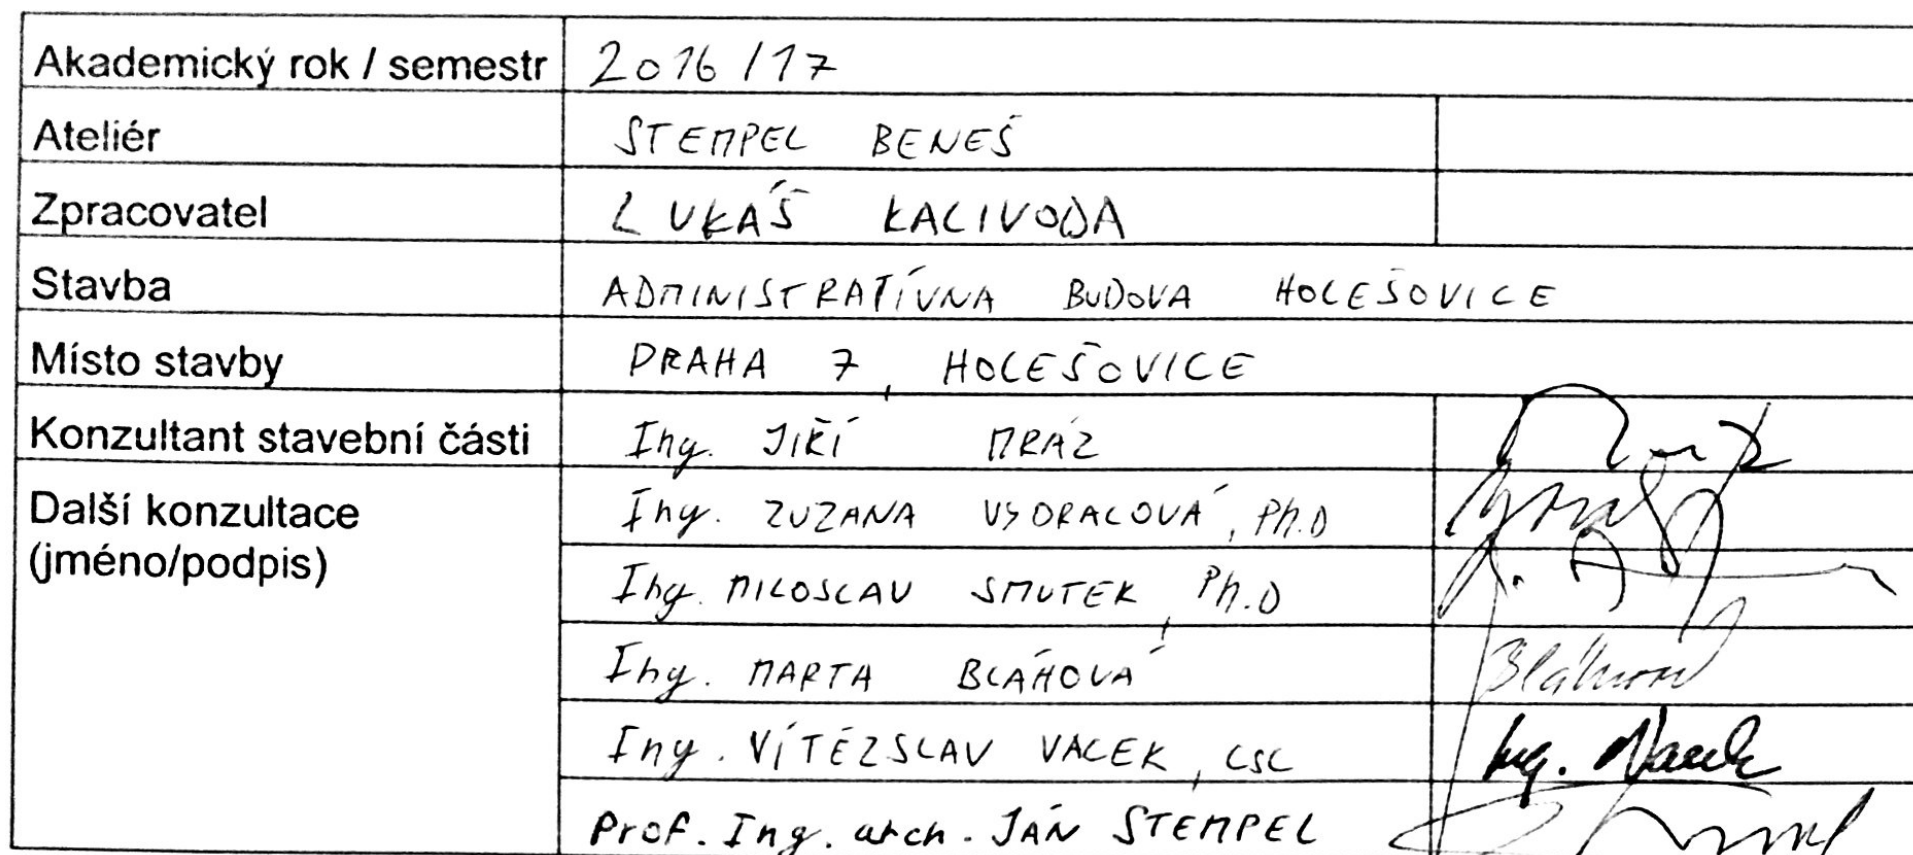 Akademický rok / semestr 2016/17
Ateliér STEMPEL BENEŠ
Zpracovatel LUKÁŠ KALIVODA
Stavba ADMINISTRATÍVNA BUDOVA HOLEŠOVICE
Místo stavby PRAHA 7, HOLEŠOVICE
Konzultant stavební části Ing. JIŘÍ MRÁZ
Další konzultace Ing. ZUZANA VYORALOVÁ, Ph.D
(jméno/podpis)
Ing. MILOSLAV SMUTEK, Ph.D
Ing. MARTA BLÁHOVÁ Bláhová
Ing. VÍTĚZSLAV VACEK, CSC Ing. Vacek
Prof. Ing. arch. JÁN STEMPEL